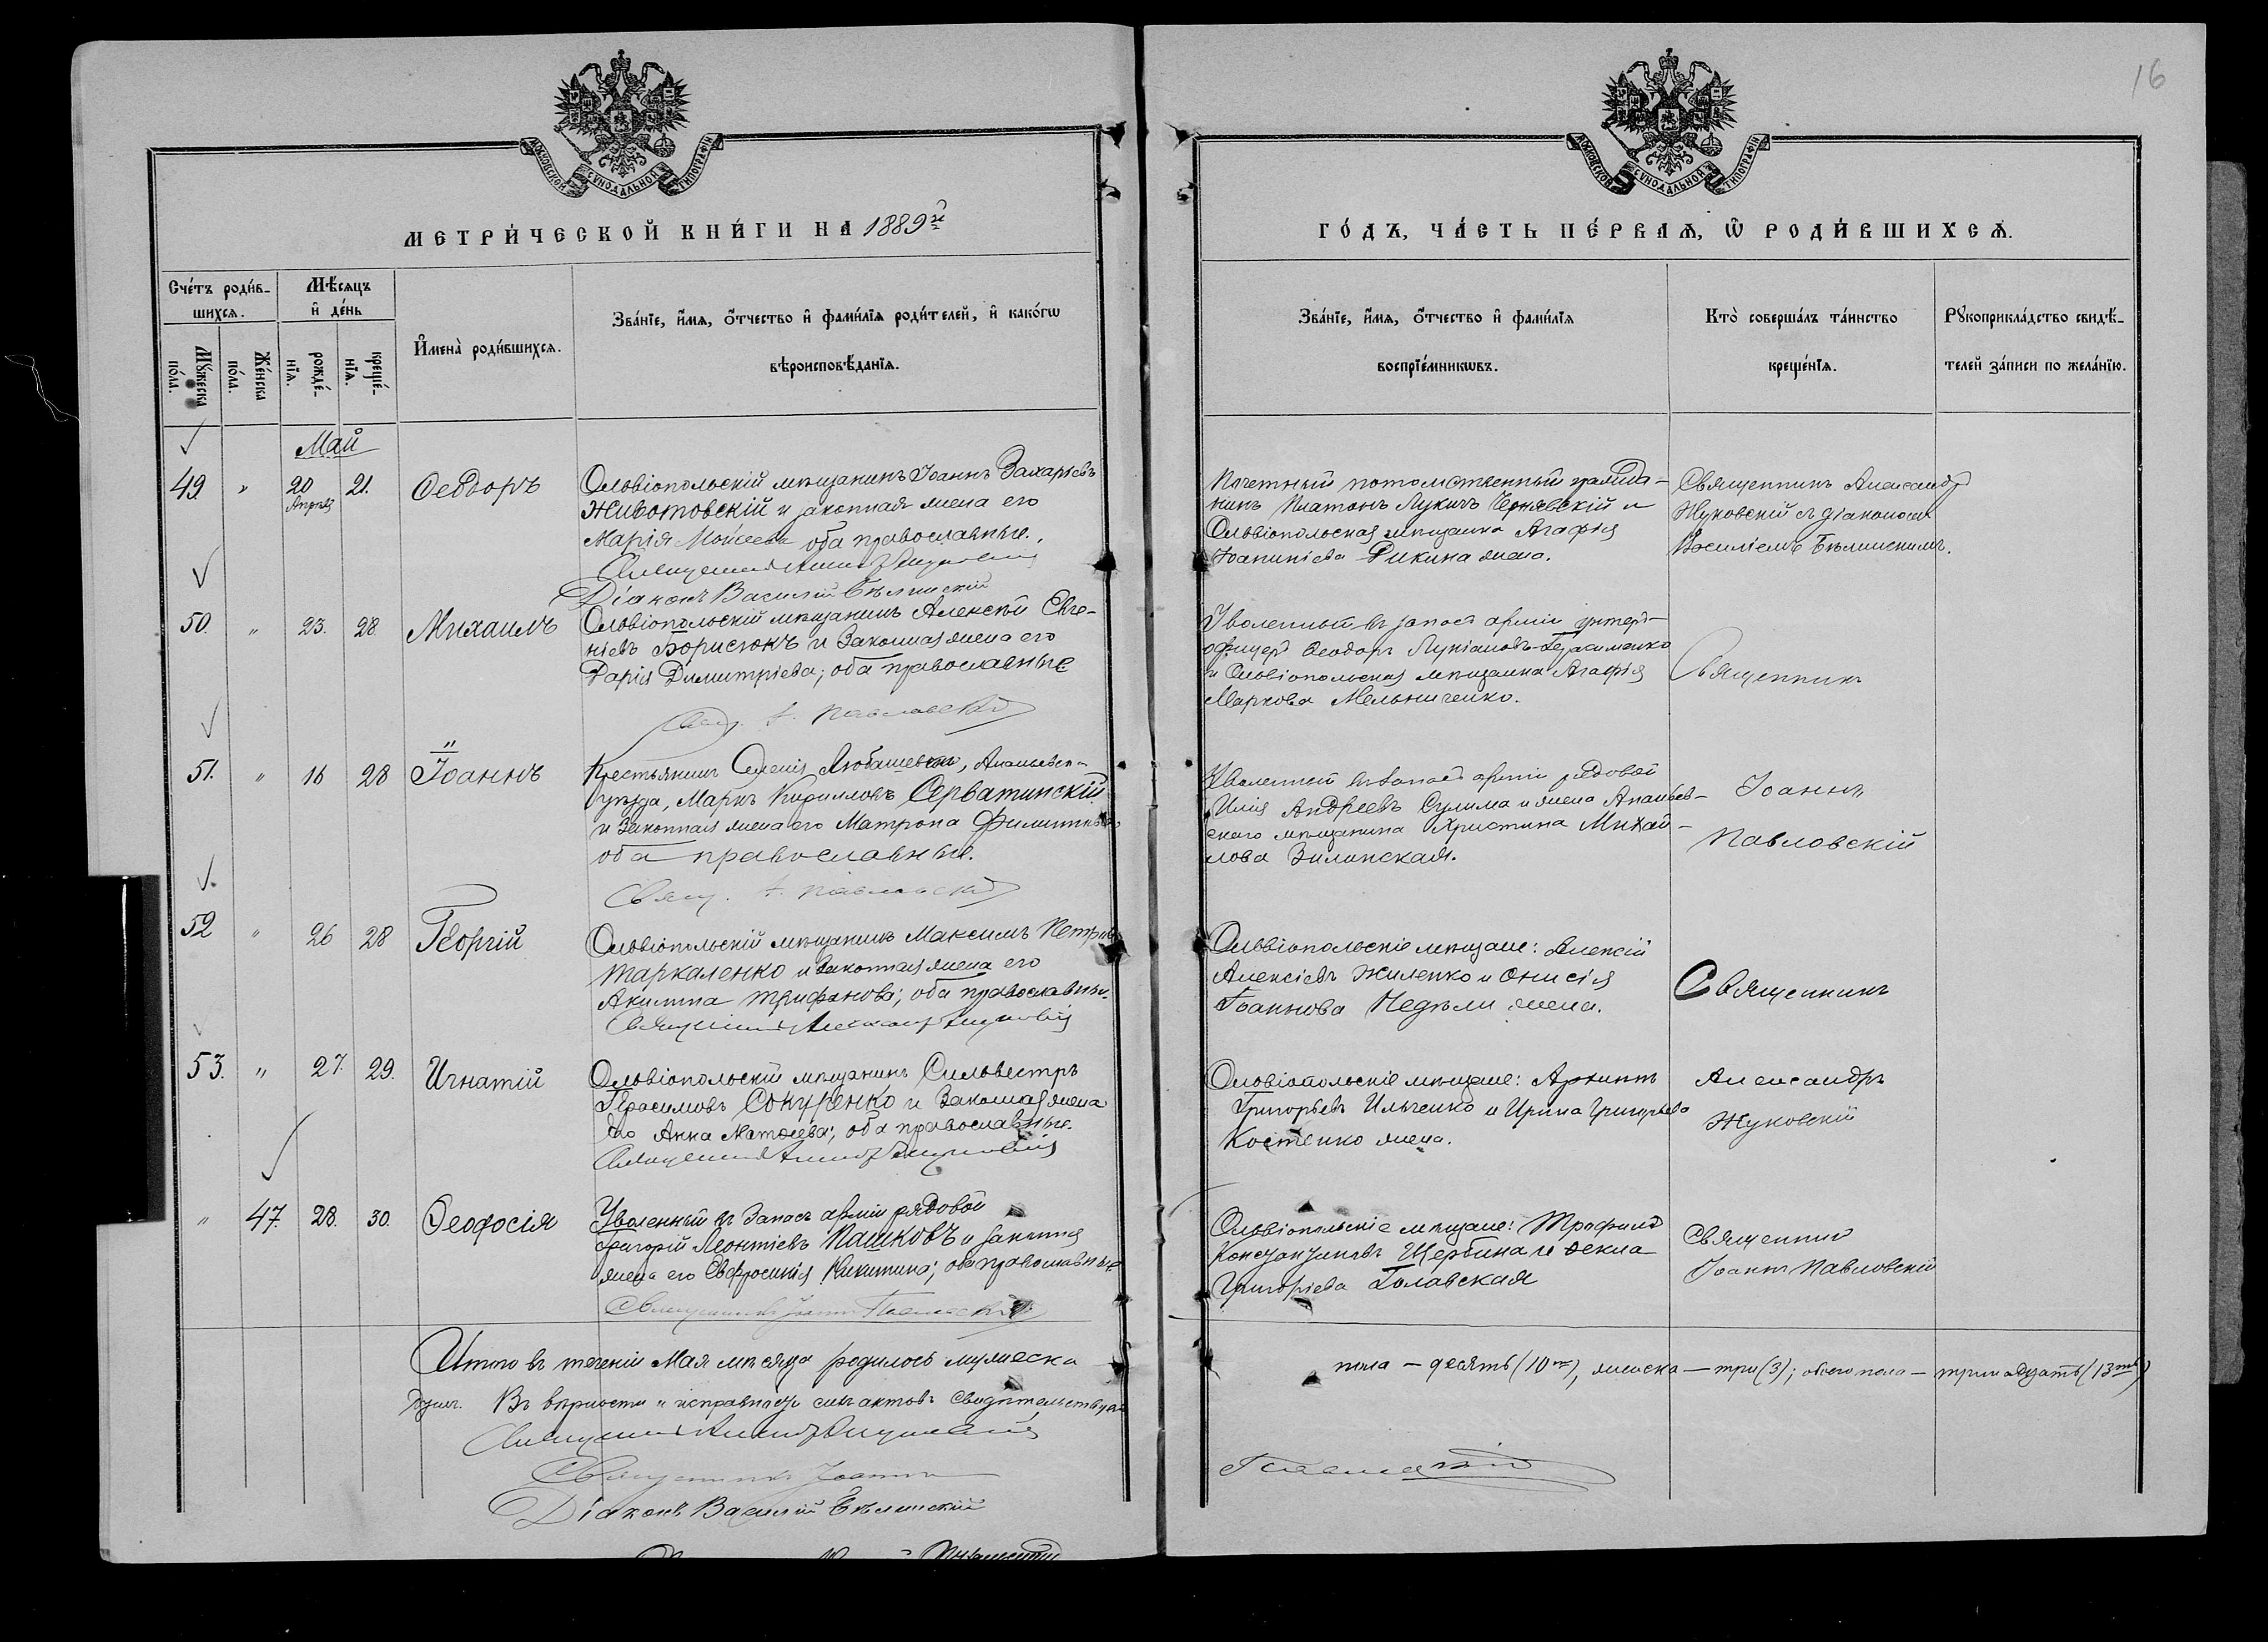 16
МОСКОВСКОЙ СУНОДАЛЬНОЙ ТИПОГРАФІИ
МОСКОВСКОЙ СУНОДАЛЬНОЙ ТИПОГРАФІИ
МЕТРИ́ЧЕСКОЙ КНИ́ГИ НА 1889й
ГО́ДЪ, ЧА́СТЬ ПЕ́РВАѦ, Ѿ РОДИ́ВШИХСѦ.
Сче́тъ роди́в-
шихсѧ.
Мꙋ́жеска
по́ла.
Же́нска
по́ла.
Мѣ́сѧцъ
и҆ де́нь
рожде́-
нїѧ.
креще́-
нїѧ.
И҆мена̀ роди́вшихсѧ.
Зва́нїе, и҆́мѧ, ѻ҆́тчество и҆ фами́лїѧ роди́телей, и҆ како́гѡ
вѣроисповѣ́данїѧ.
Зва́нїе, и҆́мѧ, ѻ҆́тчество и҆ фами́лїѧ
воспрїе́мникѡвъ.
Кто̀ соверша́лъ та́инство
креще́нїѧ.
Рꙋкоприкла́дство свидѣ́-
телей за́писи по жела́нїю.
Май
49 " 20 21. Ѳеодоръ
Апрѣля
Ольвіопольскій мѣщанинъ Іоаннъ Захарьевъ
Животовскій и законная жена его
Марія Моисеева оба православные.
Діаконъ Василій Бѣлинскій
Почетный потомственный гражда-
нинъ Платонъ Лукичъ Чернявскій и
Ольвіопольская мѣщанка Агафія
Іоанникіева Рикина жена.
Священникъ Александръ
Жуковскій съ діакономъ
Василіемъ Бѣлинскимъ.
50. " 23. 28. Михаилъ
Ольвіопольскій мѣщанинъ Алексѣй Евге-
ніевъ Борисюкъ и законная жена его
Дарія Димитріева; оба православные
Свящ. І. Павловскій
Уволенный въ запасъ арміи унтеръ-
офицеръ Ѳеодоръ Лукіановъ Герасименко
и Ольвіопольская мѣщанка Агафія
Маркова Мельниченко.
Священникъ
51. " 16 28 Іоаннъ
Крестьянинъ Селенія Любашевки, Ананьевск
уѣзда, Маркъ Кирилловъ Серватинскій
и законная жена его Матрона Филиппова
оба православные.
Свящ. І. Павловскій
Уволенный въ запасъ арміи рядовой
Илія Андреевъ Сулима и жена Ананьев-
скаго мѣщанина Христина Михай-
лова Вилинская.
Іоаннъ
Павловскій
52 " 26 28 Георгій
Ольвіопольскій мѣщанинъ Максимъ Петровъ
Таркаленко и законная жена его
Акилина Трифонова; оба православные.
Священникъ Александръ Жуковскій
Ольвіопольскіе мѣщане: Алексій
Алексіевъ Жиленко и Онисія
Іоаннова Недѣли жена.
Священникъ
53. " 27. 29. Игнатій
Ольвіопольскій мѣщанинъ Сильвестръ
Герасимовъ Сокуренко и законная жена
его Анна Матѳеева; оба православные.
Ольвіопольскіе мѣщане: Архиппъ
Григорьевъ Ильченко и Ирина Григорьева
Костенко жена.
Александръ
Жуковскій
" 47. 28. 30. Ѳеодосія
Уволенный въ запасъ арміи рядовой
Григорій Леонтіевъ Пашковъ и законная
жена его Евфросинія Никитина; оба православные
Священникъ Іоаннъ Павловскій
Ольвіопольскіе мѣщане: Трофимъ
Константиновъ Щербина и Ѳекла
Григоріева Голавская
Священникъ
Іоаннъ Павловскій
Итого въ теченіи Мая мѣсяца родилось мужеска
пола — десять (10ть), женска — три (3); обоего пола — тринадцать (13ть)
душъ. Въ вѣрности и исправности сихъ актовъ свидѣтельствуемъ
Священникъ Іоаннъ
Павловскій
Діаконъ Василій Бѣлинскій